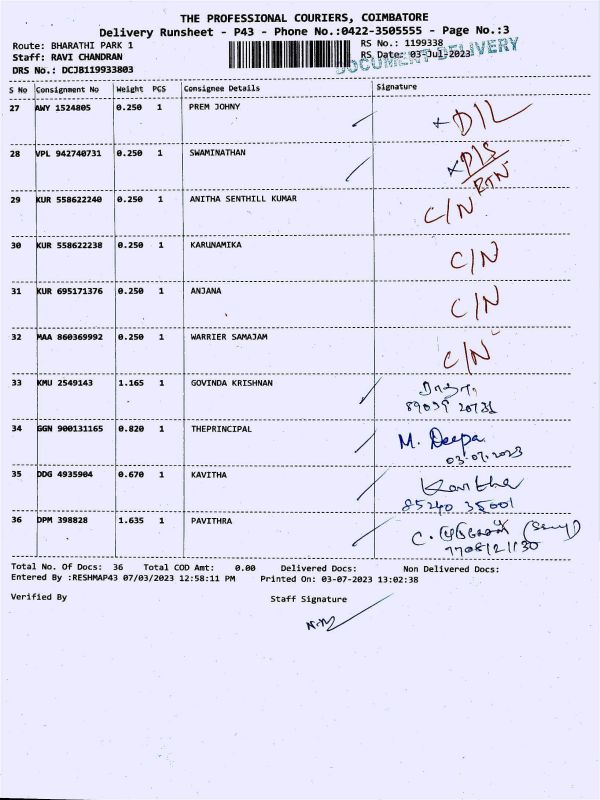 THE PROFESSIONAL COURIERS, COIMBATORE
Delivery Runsheet - P43 - Phone No.:0422-3505555 - Page No.:3
Route: BHARATHI PARK 1 RS No.: 1199338
Staff: RAVI CHANDRAN RS Date: 03-Jul-2023
DOCUMENT DELIVERY
DRS No.: DCJB119933803
S No Consignment No Weight PCS Consignee Details Signature
27 AWY 1524805 0.250 1 PREM JOHNY D/L
28 VPL 942740731 0.250 1 SWAMINATHAN D/S
RTN
29 KUR 558622240 0.250 1 ANITHA SENTHILL KUMAR C/N
30 KUR 558622238 0.250 1 KARUNAMIKA C/N
31 KUR 695171376 0.250 1 ANJANA C/N
32 MAA 860369992 0.250 1 WARRIER SAMAJAM C/N
33 KMU 2549143 1.165 1 GOVINDA KRISHNAN
89039 20731
34 GGN 900131165 0.820 1 THEPRINCIPAL M. Deepa
03.07.2023
35 DDG 4935904 0.670 1 KAVITHA Kavitha
85240 35001
36 DPM 398828 1.635 1 PAVITHRA
Total No. Of Docs: 36 Total COD Amt: 0.00 Delivered Docs: Non Delivered Docs:
Entered By :RESHMAP43 07/03/2023 12:58:11 PM Printed On: 03-07-2023 13:02:38
Verified By Staff Signature